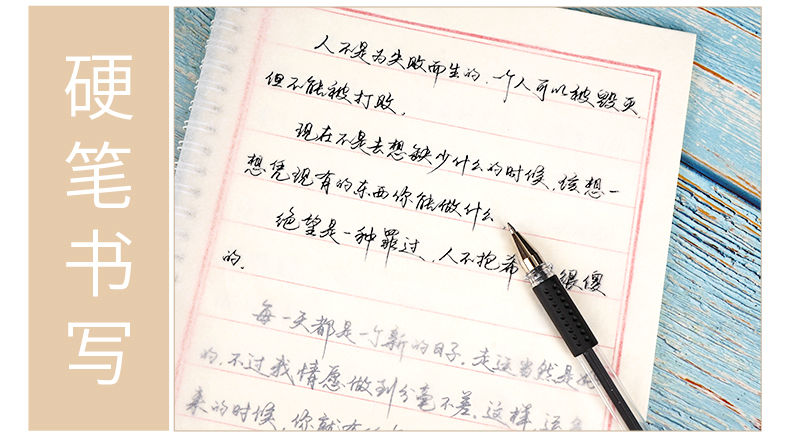 硬笔书写
人不是为失败而生的，一个人可以被毁灭，
但不能被打败。
现在不是去想缺少什么的时候，该想一
想凭现有的东西你能做什么
绝望是一种罪过，人不抱希 很傻
的。
每一天都是一个新的日子。走运当然是
的，不过我情愿做到分毫不差。这样，运
来的时候，你就有